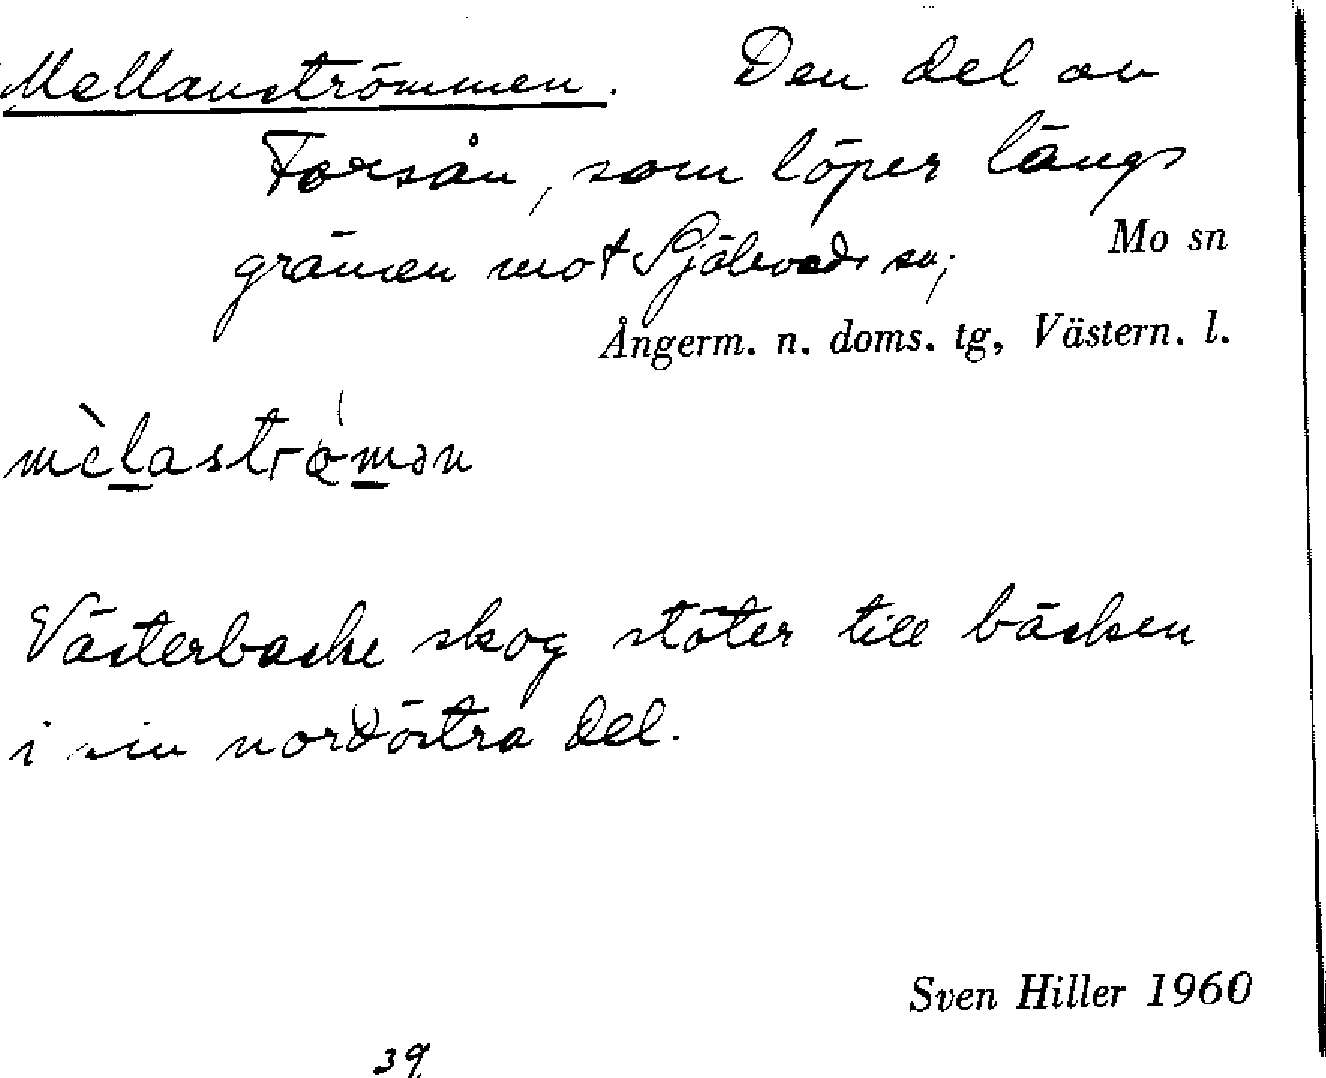 Mellanströmmen. Den del av
Forsån, som löper längs
gränsen mot Själevads sn;
Mo sn
Ångerm. n. doms. tg, Västern. l.
mèlaströ́mən
Västerbacke skog stöter till bäcken
i sin nordöstra del.
Sven Hiller 1960
39